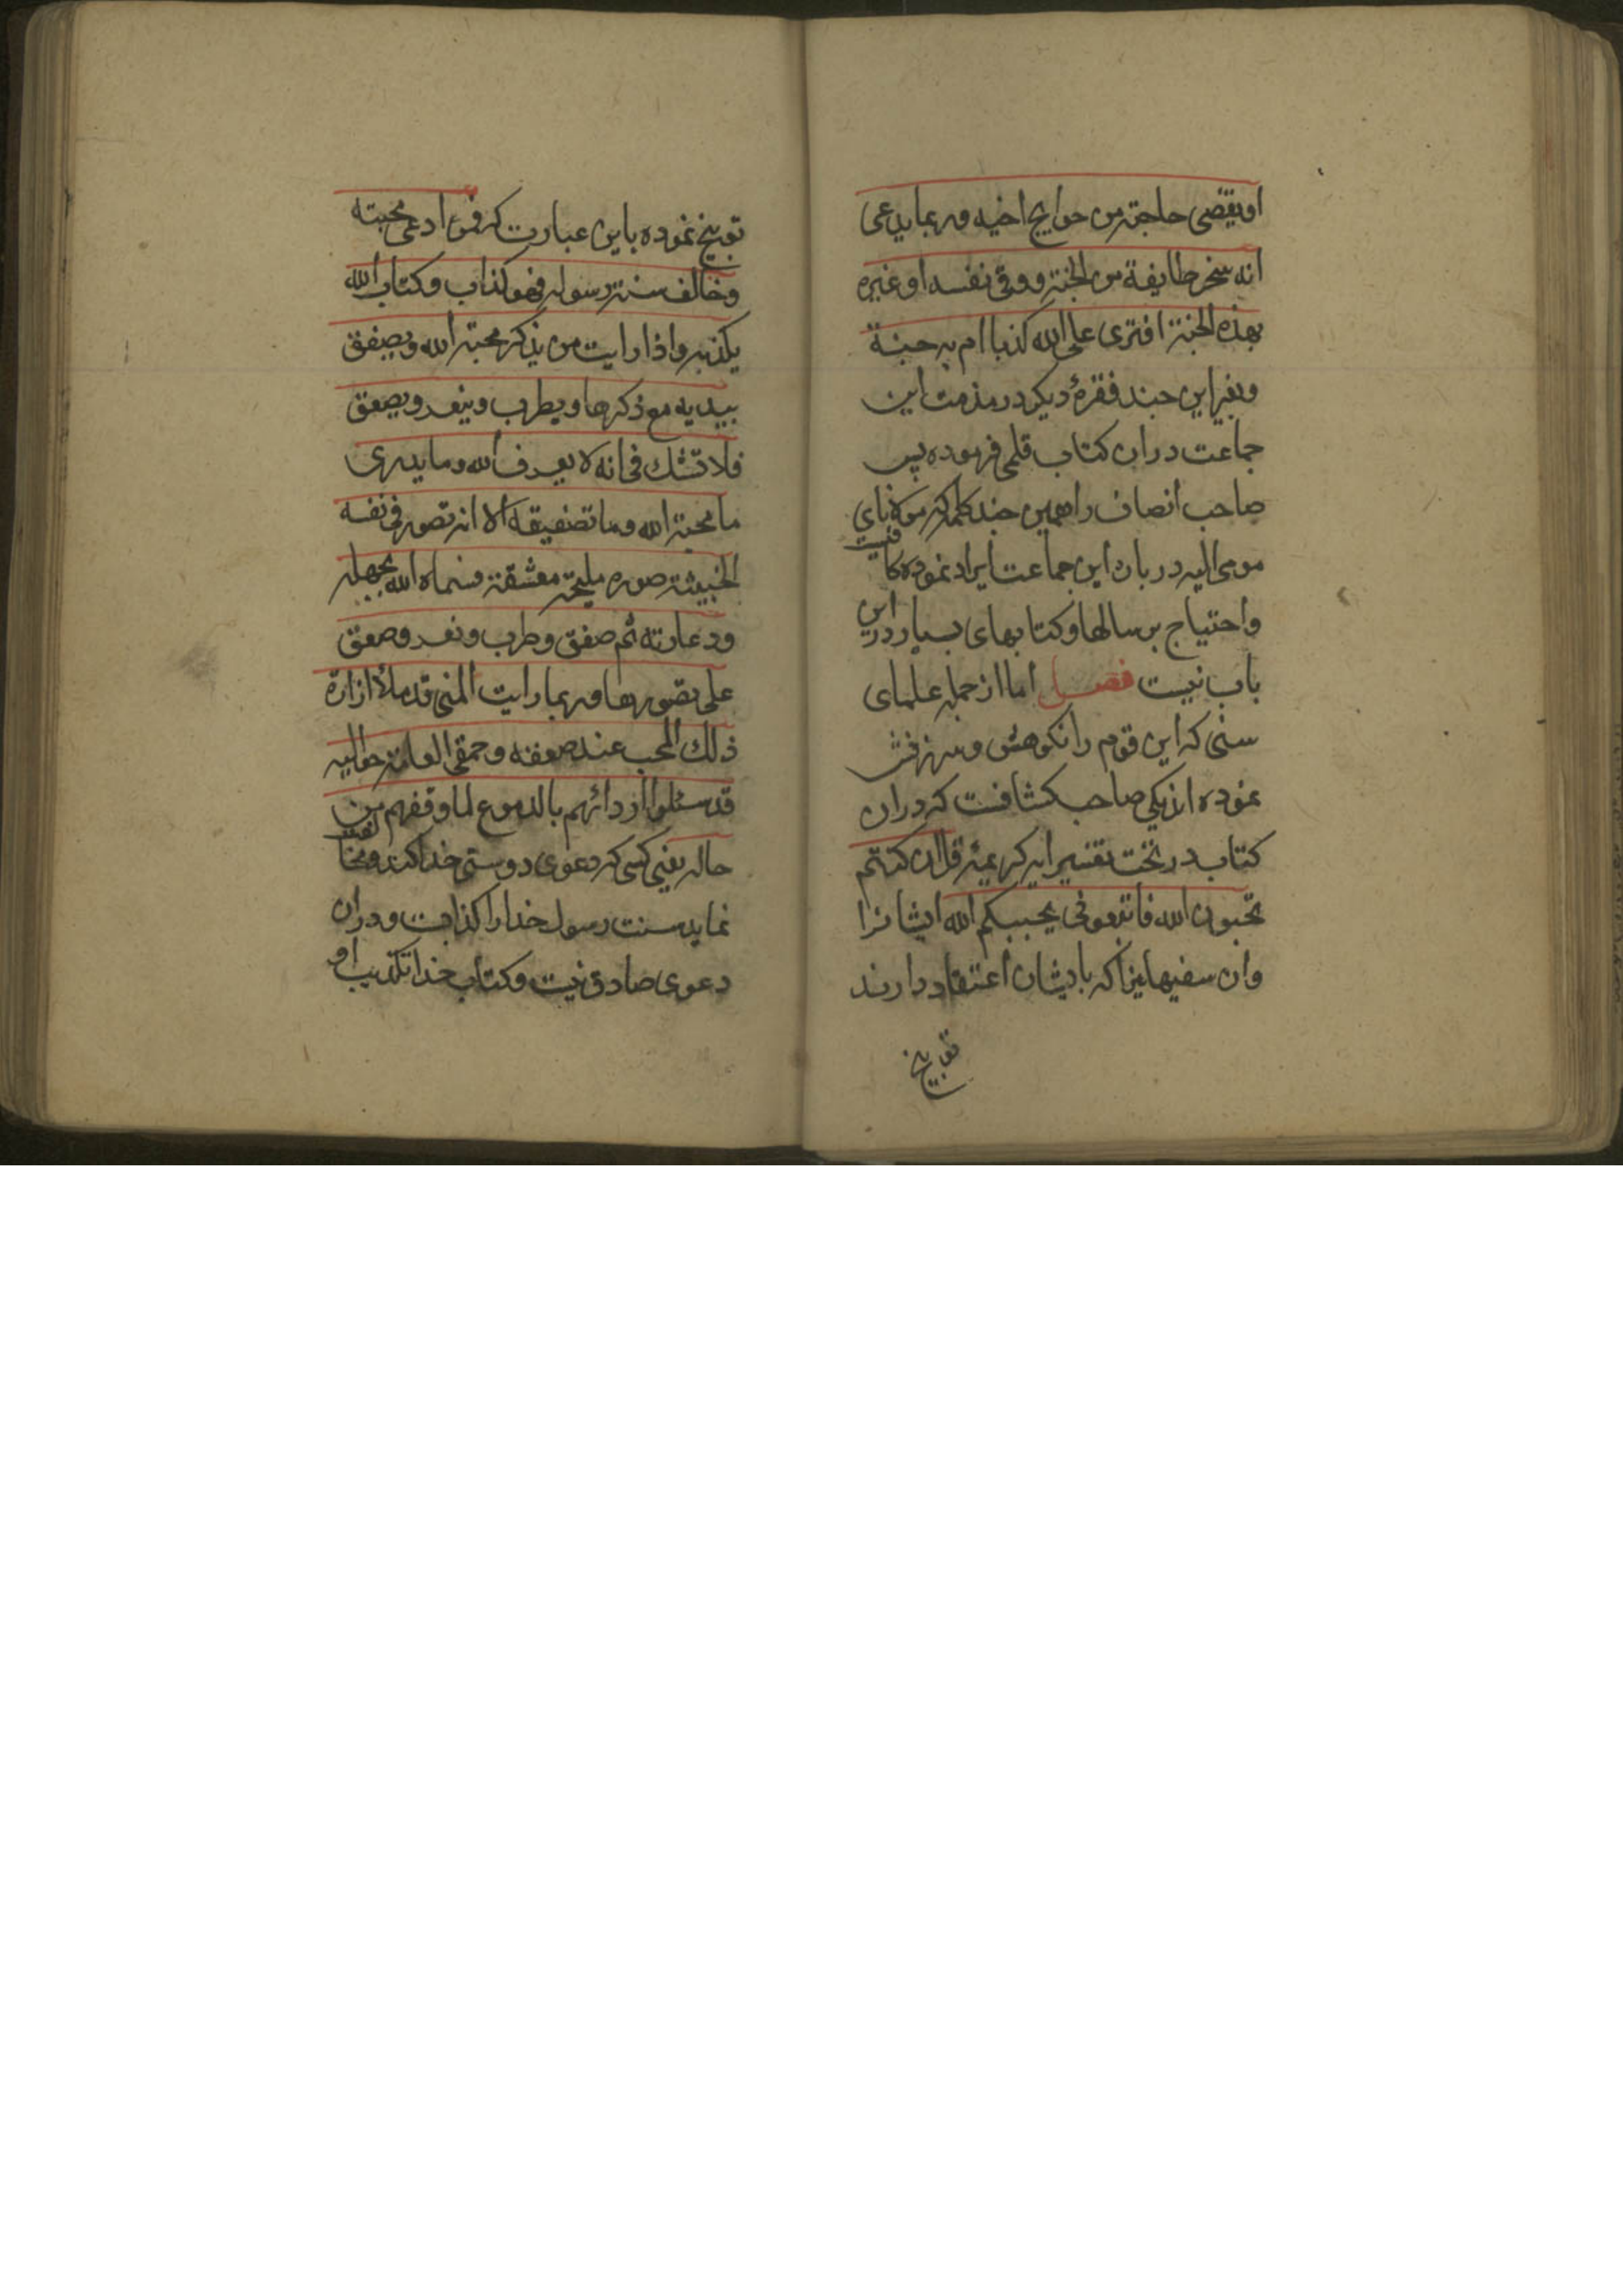 اویقضی حاجة من حوایج اخیه وربما یدعی
انه سخر طایفة من الجنة ووقی نفسه او غیره
بهذه الجنة افتری علی الله کذبا ام به جنة
وبغیر این چند فقرهٔ دیکر در مذمت این
جماعت دران کتاب قلمی فرموده پس
صاحب انصاف را همین چند کلمه که مولانای
مومی الیه در بارن این جماعت ایراد نموده کافیست
واحتیاج برسالها وکتابهای بسیار در این
باب نیست فصل اما از جمله علمای
سنی که این قوم را نکوهش وسرزنش
نموده اند یکی صاحب کشافست که دران
کتاب در تحت تفسیر ایه کریمه قل ان کنتم
تحبون الله فاتبعونی یحببکم الله ایشانرا
وان سفیهانیرا که بایشان اعتقاد دارند
توبیخ
توبیخ نموده باین عبارت که فمن ادعی محبته
وخالف سنة رسوله فهو کذاب وکتاب الله
یکذبه واذا رایت من یذکر محبة الله ویصفق
بیدیه مع ذکرها ویطرب وینعر ویصعق
فلا تشك فی انه لا یعرف الله وما یدری
ما محبة الله وما تصفیقه الا انه تصور فی نفسه
الخبیثة صورة ملیحة معشقة فسماه الله بجهله
ودعارته ثم صفق وطرب ونعر وصعق
علی تصورها وربما رایت المنی قد ملأ ازارة
ذلك المحب عند صعقته وحمقی العامة حوالیه
قد سئلوا ازدائهم بالدموع لما وقفهم من
حاله یعنی کسی که دعوی دوستی خدا کند ومخالفت
نماید سنت رسول خدا را کذابست ودران
دعوی صادق نیست وکتاب خدا تکذیب او